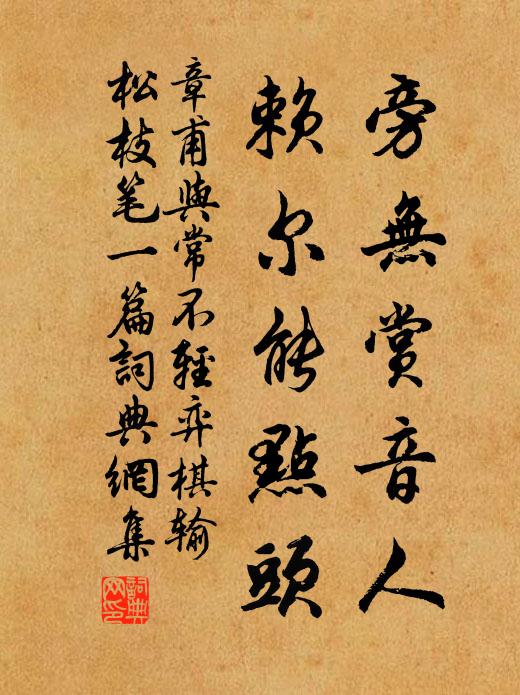 旁無賞音人
賴尔能點頭
章甫與常不輕弈棋输
松枝笔一篇詞典網集
詞典
网印